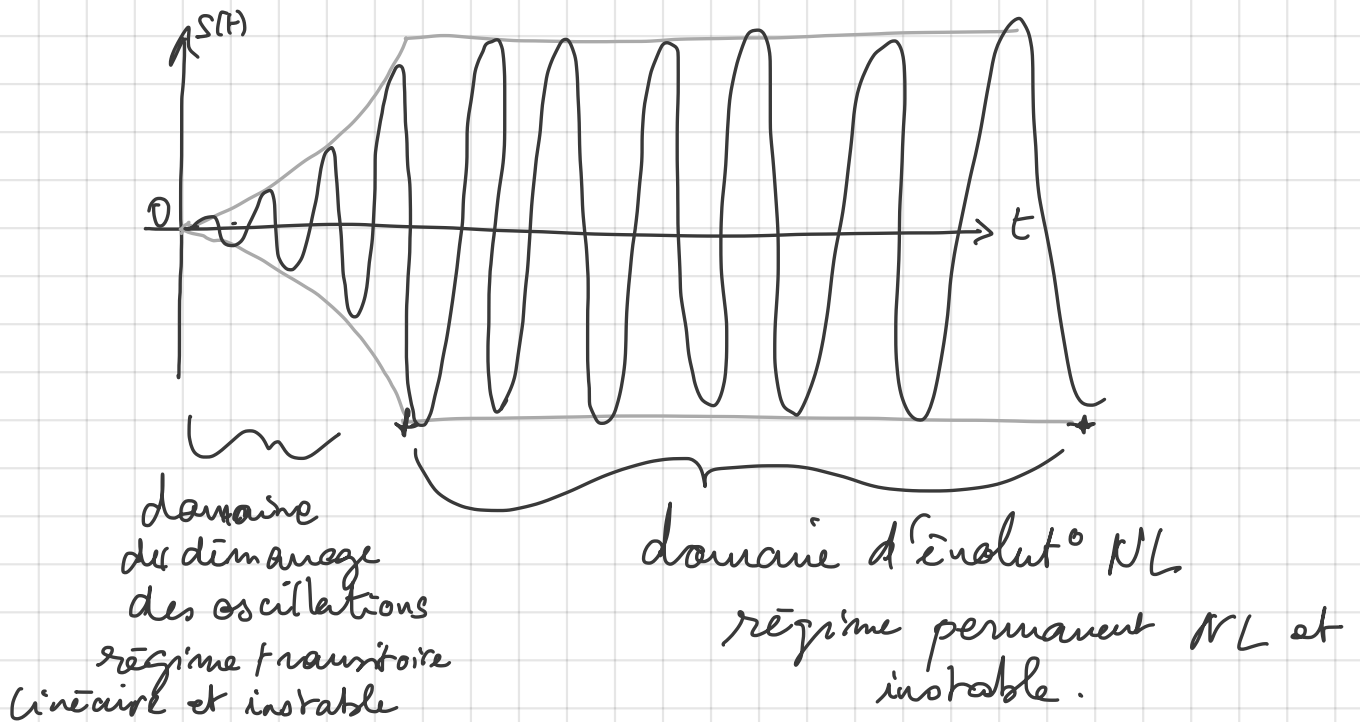 S(t)
O
t
domaine
du démarrage
des oscillations
régime transitoire
linéaire et instable
domaine d'évolut° NL
régime permanent NL et
instable.